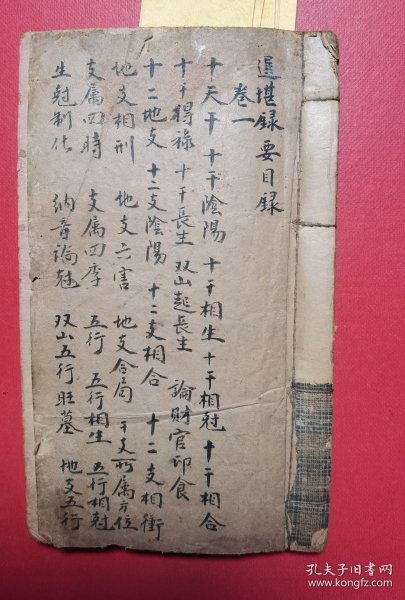 選堪錄 要目录
卷一
十天干 十干陰陽 十干相生 十干相冠 十干相合
十干得祿 十干長生 双山起長生 論財官印食
十二地支 十二支陰陽 十二支相合 十二支相衝
地支相刑 地支六害 地支合局 干支所属方位
支属四時 支属四季 五行 五行相生 五行相冠
生冠制化 納音論冠 双山五行旺墓 地支五行
孔夫子旧书网
www.kongfz.com